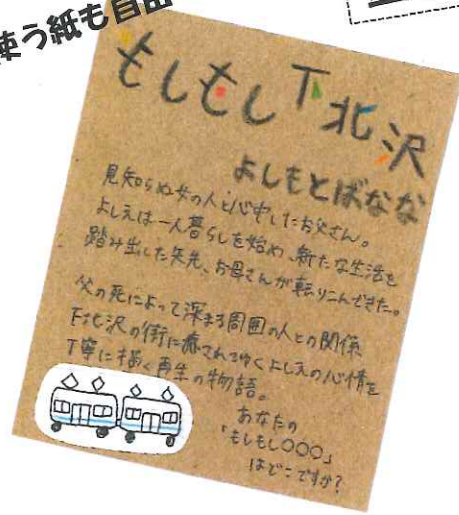 使う紙も自由
もしもし下北沢
よしもとばなな
見知らぬ女の人と心中したお父さん。
よしえは一人暮らしを始め、新たな生活を
踏み出した矢先、お母さんが転りこんできた。
父の死によって深まる周囲の人との関係
下北沢の街に癒されてゆくよしえの心情を
丁寧に描く再生の物語。
あなたの
「もしもし〇〇〇」
はどこですか?